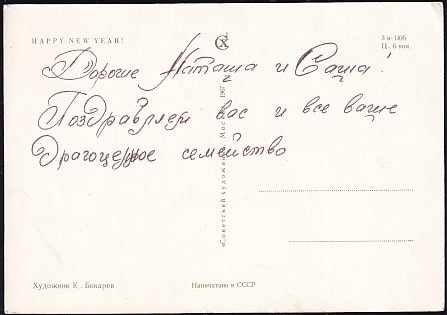 HAPPY NEW YEAR!
З в-1106
Ц. 6 коп
Дорогие Наташа и Саша!
Поздравляем вас и все ваше
драгоценное семейство
«Советский художник» Москва 1967
Художник К. Бокарев
Напечатано в СССР